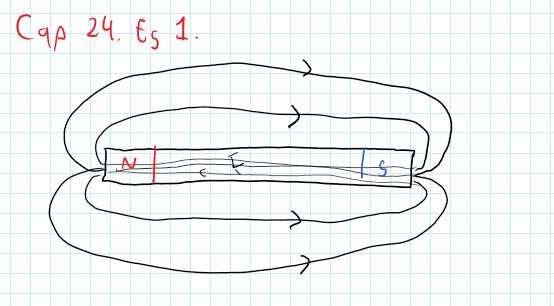 Cap 24. Es 1.
N S